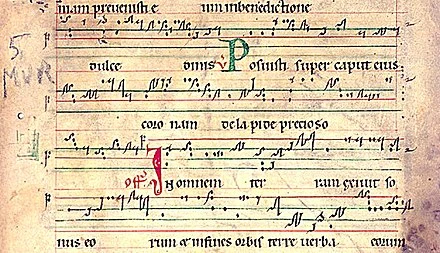 niam prevenisti e um in benedictione
dulce dinis ℣ Posuisti super caput eius
coro nam de lapide precioso
offrͫ In omnem ter ram exivit so
nus eo rum et in fines orbis terre verba eorum
5
MVR